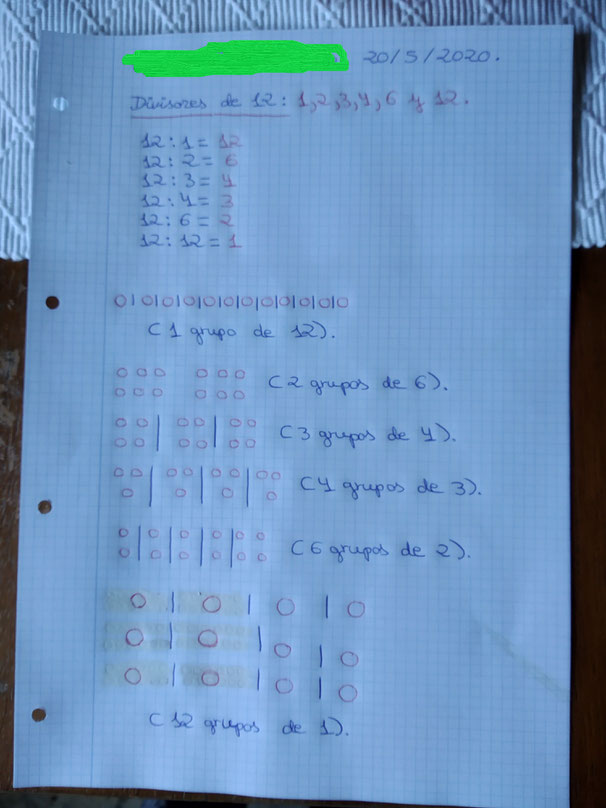 20/5/2020.
Divisores de 12: 1,2,3,4,6 y 12.
12:1=12
12:2=6
12:3=4
12:4=3
12:6=2
12:12=1
(1 grupo de 12).
(2 grupos de 6).
(3 grupos de 4).
(4 grupos de 3).
(6 grupos de 2).
(12 grupos de 1).